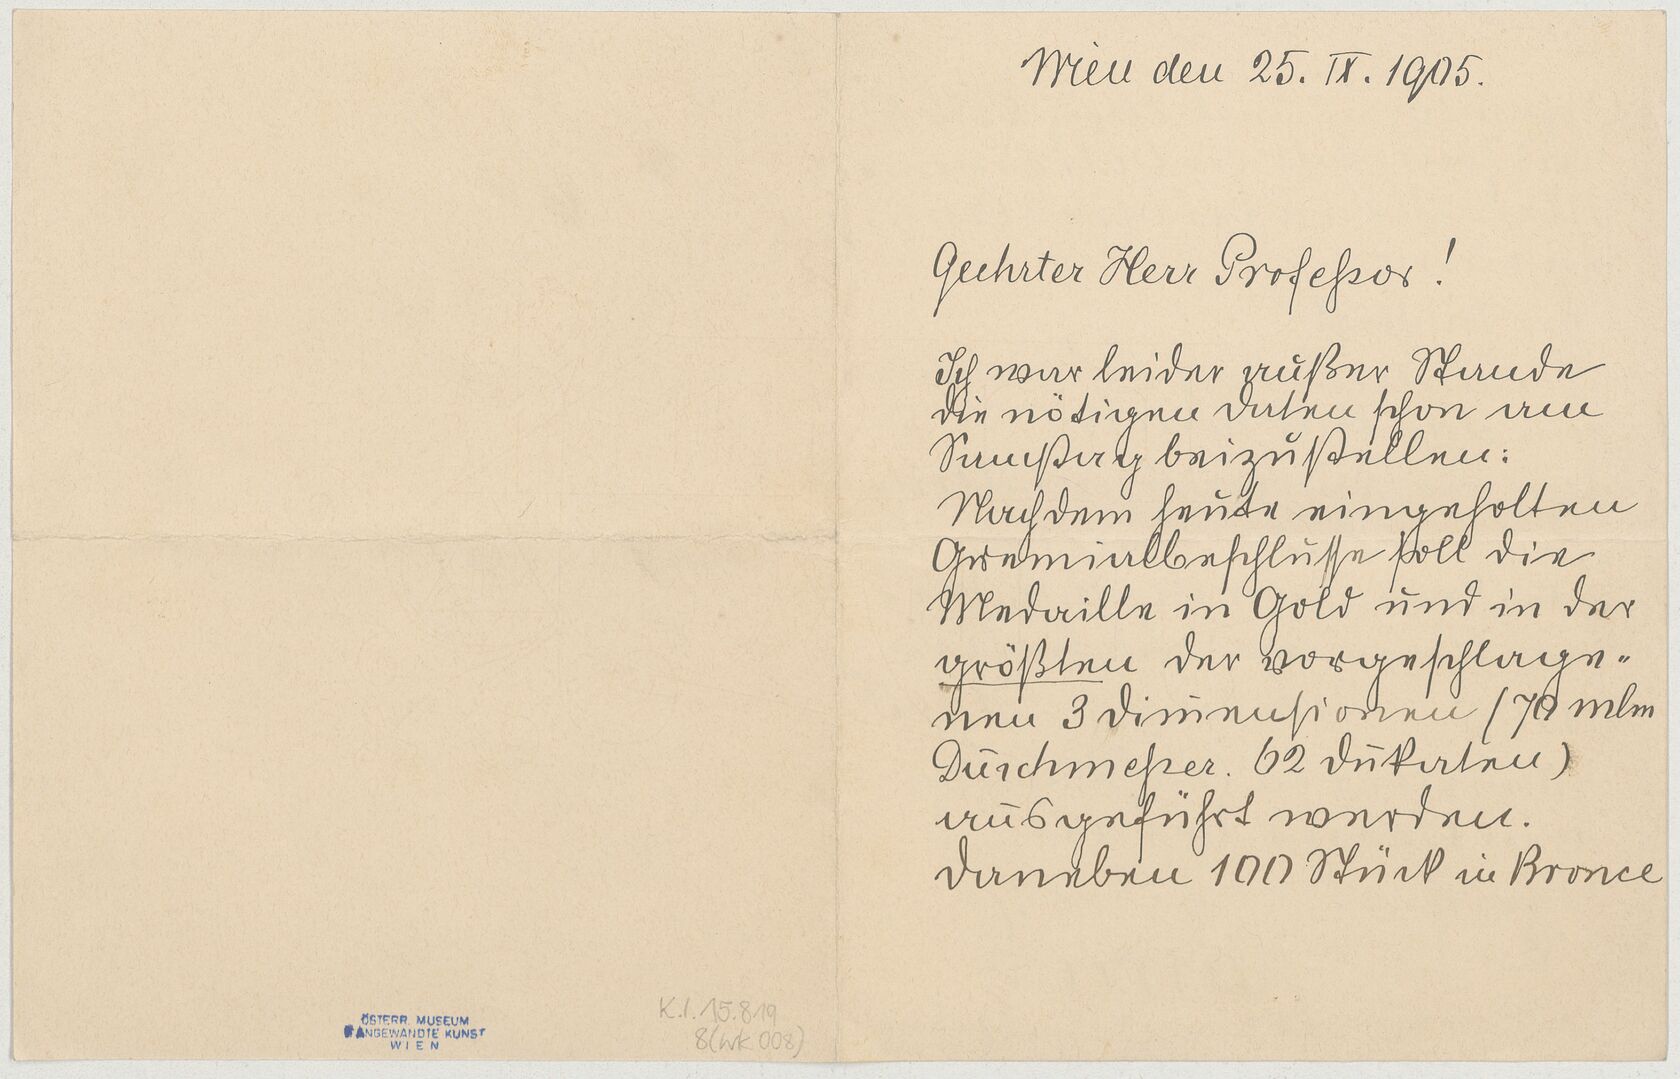 Wien den 25. IX. 1905.
Geehrter Herr Professor!
Ich war leider außer Stande
die nötigen Daten schon am
Samstag beizustellen:
Nach dem heute eingeholten
Gremialbeschlusse soll die
Medaille in Gold und in der
größten der vorgeschlage-
nen 3 Dimensionen (70 m/m
Durchmesser. 62 Dukaten)
ausgeführt werden.
Daneben 100 Stück in Bronce
ÖSTERR. MUSEUM
F ANGEWANDTE KUNST
WIEN
K.I. 15.819
8(wk 008)